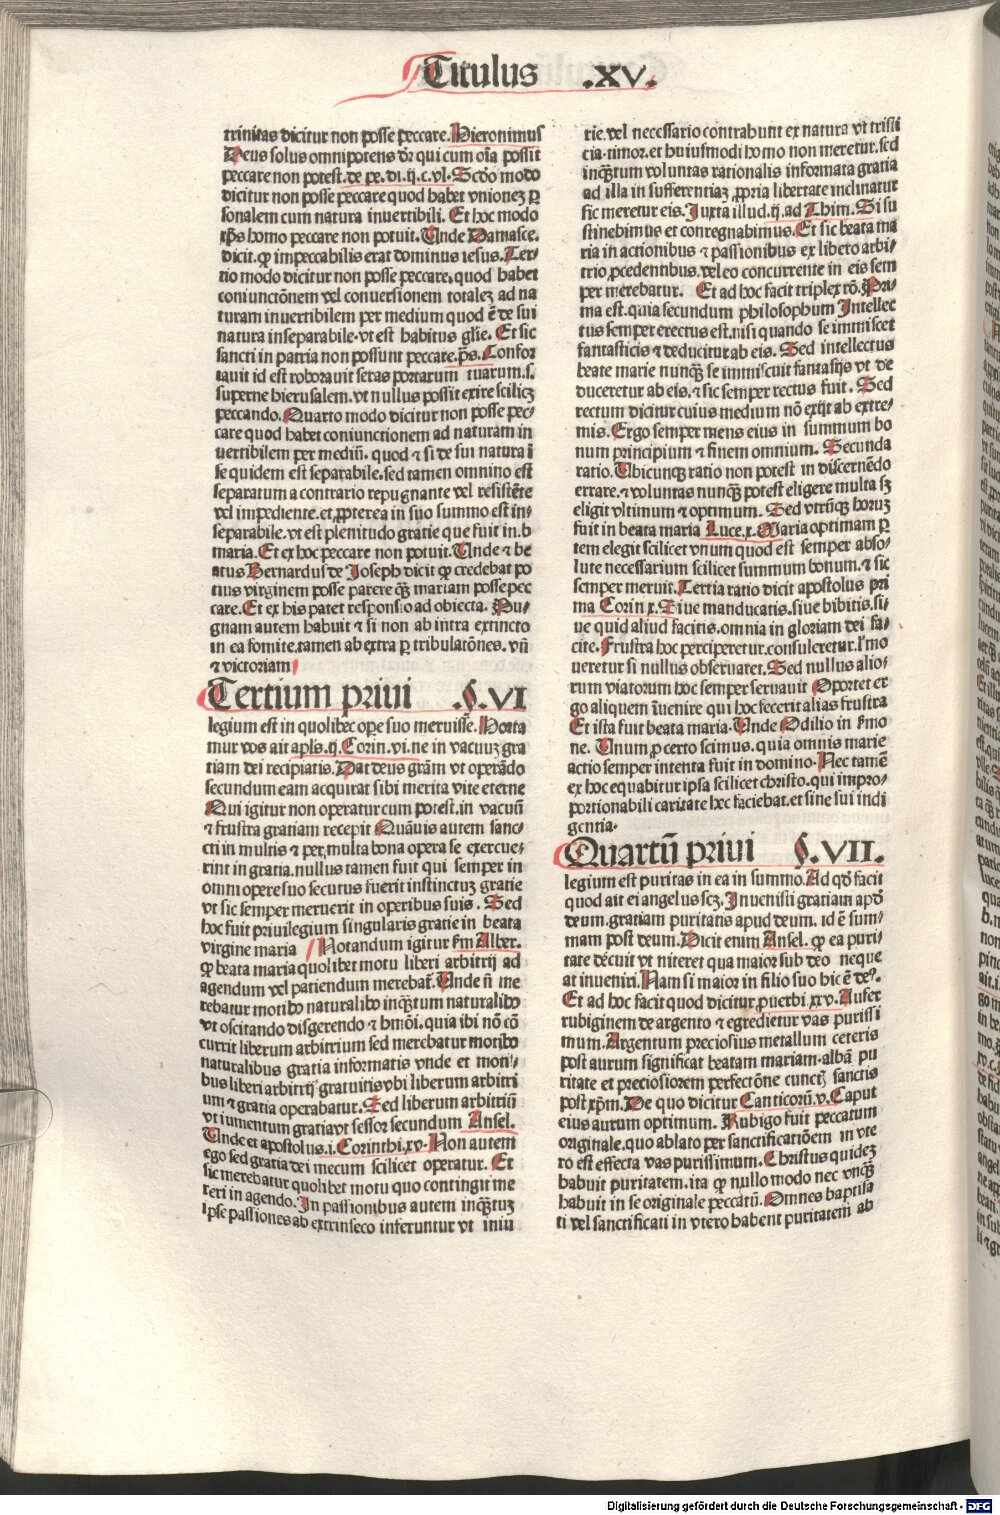 Titulus .XV.
trinitas dicitur non posse peccare. Hieronimus
Deus solus omnipotens dr̄ qui cum oīa possit
peccare non potest. de pe. di. ij. c. vl. Scd̄o modo
dicitur non posse peccare quod habet vnionez ꝑ
sonalem cum natura inuertibili. Et hoc modo
xp̄s homo peccare non potuit. Unde Damasce.
dicit. ꝙ impeccabilis erat dominus iesus. Ter-
tio modo dicitur non posse peccare, quod habet
coniunctōnem vel conuersionem totalez ad na
turam inuertibilem per medium quod ē de sui
natura inseparabile. vt est habitus glīe. Et sic
sancti in patria non possunt peccare. ps̄. Confor
tauit id est roborauit seras portarum tuarum. s.
superne hierusalem. vt nullus possit exire scilicz
peccando. Quarto modo dicitur non posse pec-
care quod habet coniunctionem ad naturam in
uertibilem per mediū. quod ⁊ si de sui natura ī
se quidem est separabile. sed tamen omnino est
separatum a contrario repugnante vel resistēte
vel impediente. et ꝓpterea in suo summo est in-
separabile. vt est plenitudo gratie que fuit in. b
maria. Et ex hoc peccare non potuit. Unde ⁊ be
atus Bernardus de Joseph dicit ꝙ credebat po
tius virginem posse parere qꝫ mariam posse pec
care. Et ex his patet responsio ad obiecta. Pu-
gnam autem habuit ⁊ si non ab intra extincto
in ea fomite. tamen ab extra ꝑ tribulatōnes. vn̄
⁊ victoriam
Tertium priui §.VI
legium est in quolibet oꝑe suo meruisse. Horta
mur vos ait apl̄s. ij. Corin. vi. ne in vacuuz gra
tiam dei recipiatis. Dat deus gr̄am vt operādo
secundum eam acquirat sibi merita vite eterne
Qui igitur non operatur cum potest. in vacuū
⁊ frustra gratiam recepit Quāuis autem sanc-
ti in multis ⁊ per multa bona opera se exercue-
rint in gratia. nullus tamen fuit qui semper in
omni opere suo secutus fuerit instinctuz gratie
vt sic semper meruerit in operibus suis. Sed
hoc fuit priuilegium singularis gratie in beata
virgine maria Notandum igitur s̄m Alber.
ꝙ beata maria quolibet motu liberi arbitrij ad
agendum vel patiendum merebat̄. Unde n̄ me
rebatur motibꝰ naturalibꝰ inqꝫtum naturalibꝰ
vt oscitando disgerendo ⁊ hmōi. quia ibi nō cō
currit liberum arbitrium sed merebatur motibꝰ
naturalibus gratia informatis vnde et moti-
bus liberi arbitrij gratuitis vbi liberum arbitri
um ⁊ gratia operabatur. Sed liberum arbitriū
vt iumentum gratia vt sessor secundum Ansel.
Unde et apostolus. i. Corinthi. xv. Non autem
ego sed gratia dei mecum scilicet operatur. Et
sic merebatur quolibet motu quo contingit me
reri in agendo. In passionibus autem inqꝫtuz
ipse passiones ab extrinseco inferuntur vt iniu
rie. vel necessario contrahunt ex natura vt tristi
cia. timor. et huiusmodi homo non meretur. sed
inqꝫtum voluntas rationalis informata gratia
ad illa in sufferentiaz ꝓpria libertate inclinatur
sic meretur eis. Juxta illud. ij. ad Thim. Si su
stinebimus et conregnabimus. Et sic beata ma
ria in actionibus ⁊ passionibus ex libero arbi-
trio ꝓcedentibus. vel eo concurrente in eis sem
per merebatur. Et ad hoc facit triplex rō. Pri-
ma est. quia secundum philosophum Intellec
tus semper erectus est. nisi quando se immiscet
fantasticis ⁊ deducitur ab eis. Sed intellectus
beate marie nunqꝫ se immiscuit fantasijs vt de
duceretur ab eis. ⁊ sic semper rectus fuit. Sed
rectum dicitur cuius medium nō exijt ab extre-
mis. Ergo semper mens eius in summum bo
num principium ⁊ finem omnium. Secunda
ratio. Ubicunqꝫ ratio non potest in discernēdo
errare. ⁊ voluntas nunqꝫ potest eligere multa sꝫ
eligit vltimum ⁊ optimum. Sed vtrūqꝫ horuz
fuit in beata maria Luce. x. Maria optimam ꝑ
tem elegit scilicet vnum quod est semper abso-
lute necessarium scilicet summum bonum. ⁊ sic
semper meruit. Tertia ratio dicit apostolus pri
ma Corin x. Siue manducatis. siue bibitis. si-
ue quid aliud facitis. omnia in gloriam dei fa-
cite. Frustra hoc perciperetur. consuleretur. l' mo
ueretur si nullus obseruaret. Sed nullus alio-
rum viatorum hoc semper seruauit Oportet er
go aliquem īuenire qui hoc fecerit alias frustra
Et ista fuit beata maria. Unde Odilio in s̄mo
ne. Unum ꝓ certo scimus. quia omnis marie
actio semper intenta fuit in domino. Nec tamē
ex hoc equabitur ipsa scilicet christo. qui impro-
portionabili caritate hec faciebat. et sine sui indi
gentia.
Quartū priui §.VII.
legium est puritas in ea in summo. Ad qd̄ facit
quod ait ei angelus scz. Inuenisti gratiam apd̄
deum. gratiam puritatis apud deum. id ē sum-
mam post deum. Dicit enim Ansel. ꝙ ea puri-
tate decuit vt niteret qua maior sub deo neque
at inueniri. Nam si maior in filio suo hic ē deꝰ.
Et ad hoc facit quod dicitur ꝓuerbi. xxv. Aufer
rubiginem de argento ⁊ egredietur vas purissi
mum. Argentum preciosius metallum ceteris
post aurum significat beatam mariam. albā pu
ritate et preciosiorem perfectōne cunctꝭ sanctis
post xp̄m. De quo dicitur Canticorū. v. Caput
eius aurum optimum. Rubigo fuit peccatum
originale. quo ablato per sanctificatiōem in vte
ro est effecta vas purissimum. Christus quidez
habuit puritatem. ita ꝙ nullo modo nec vnqꝫ
habuit in se originale peccatū. Omnes baptisa
ti vel sanctificati in vtero habent puritatem ab
Digitalisierung gefördert durch die Deutsche Forschungsgemeinschaft - DFG